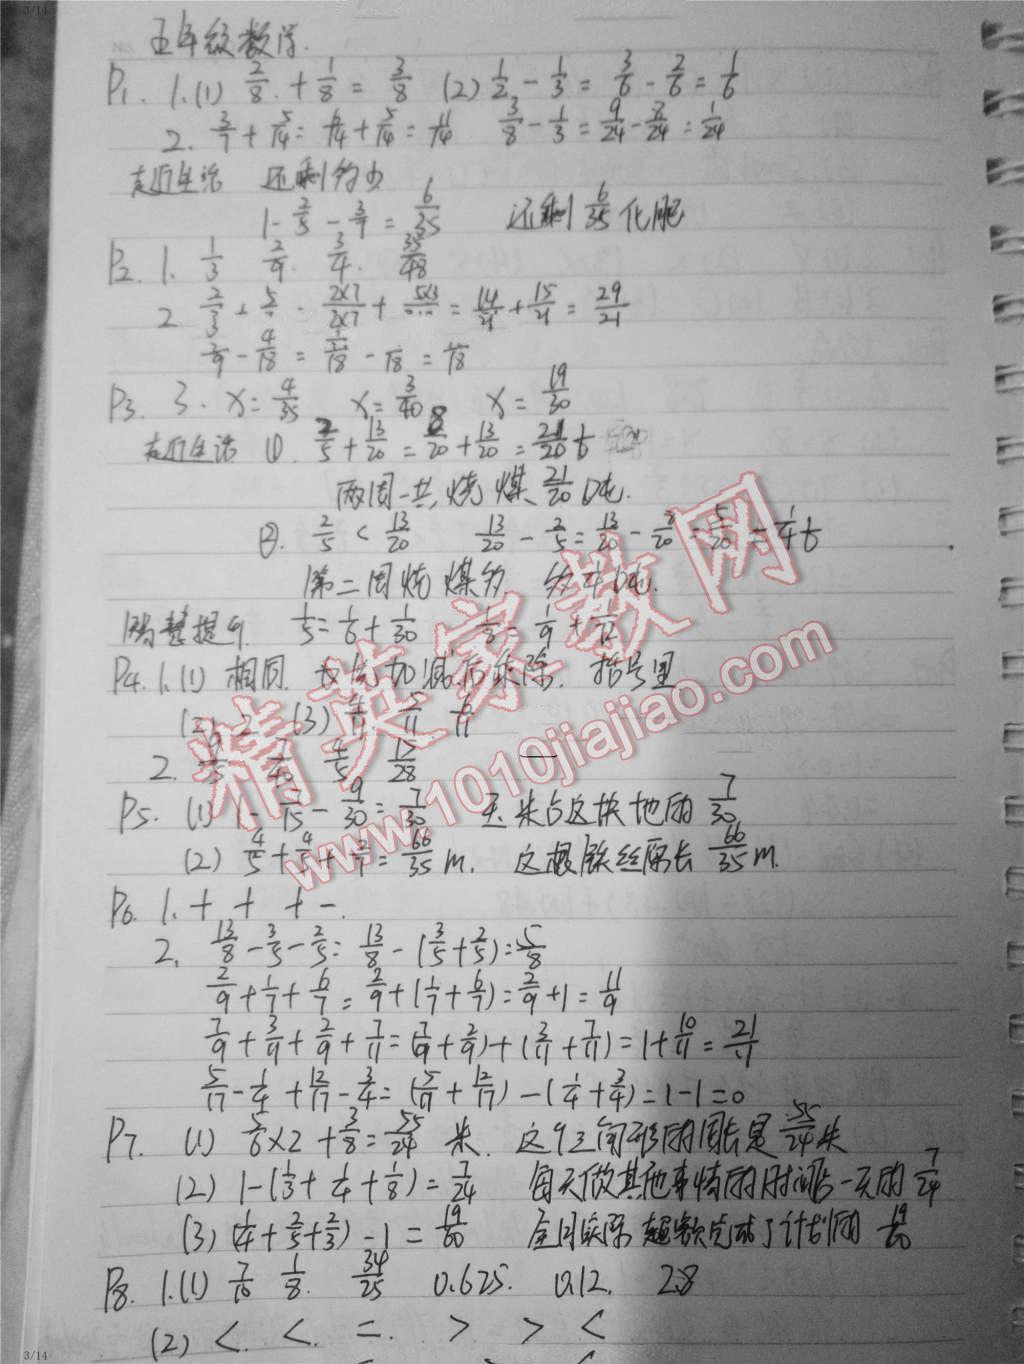 3/14
五年级数学.
P1. 1.(1) 2/8 + 1/8 = 3/8 (2) 1/2 - 1/3 = 3/6 - 2/6 = 1/6
2. 3/7 + 5/14 = 6/14 + 5/14 = 11/14 3/8 - 1/3 = 9/24 - 8/24 = 1/24
走近生活 还剩多少
1 - 2/5 - 3/7 = 6/35 还剩 6/35 化肥
P2. 1. 1/3 2/9. 3/4. 35/48
2 2/3 + 5/ 2×7/ + 5×3/ = 14/21 + 15/21 = 29/21
/9 - 4/18 = /18 - /18 = /18
P3. 3. x = 4/35 x = 3/40 x = 19/30
走近生活 (1). 2/5 + 13/20 = 8/20 + 13/20 = 21/20 t
两周一共烧煤 21/20 吨.
(2). 2/5 < 13/20 13/20 - 2/5 = 13/20 - 8/20 = 5/20 = 1/4 t
第二周烧煤多 多 1/4 吨.
智慧提升 1/5 = 1/6 + 1/30 1/8 = 1/9 + 1/72
P4. 1.(1) 相同. 加减 乘除. 括号里
(2) 2 (3) 4/11 5/11 6/11
2. 4/5 15/28
P5. (1) 1 - 7/15 - 9/30 = 7/30 玉米占这块地的 7/30
(2) 4/5 + 4/5 + 2/7 = 66/35 m. 这根铁丝原长 66/35 m.
P6. 1. + + + -.
2. 13/8 - 3/5 - 2/5 = 13/8 - (3/5 + 2/5) = 5/8
2/9 + 1/7 + 6/7 = 2/9 + (1/7 + 6/7) = 2/9 + 1 = 11/9
7/9 + 3/11 + 2/9 + 7/11 = (7/9 + 2/9) + (3/11 + 7/11) = 1 + 10/11 = 21/11
5/17 - 1/4 + 12/17 - 3/4 = (5/17 + 12/17) - (1/4 + 3/4) = 1 - 1 = 0
P7. (1) 5/6 × 2 + 3/8 = 55/24 米. 这个三角形的周长是 55/24 米
(2) 1 - (1/3 + 1/4 + 1/8) = 7/24 每天做其他事情的时间占一天的 7/24
(3) (1/4 + 2/5 + 2/3) - 1 = 19/60 全月实际超额完成了计划的 19/60
P8. 1.(1) 7/10 1/8. 34/25 0.625. 0.12. 2.8
(2) <. <. =. > > <
3/14
精英家教网
www.1010jiajiao.com